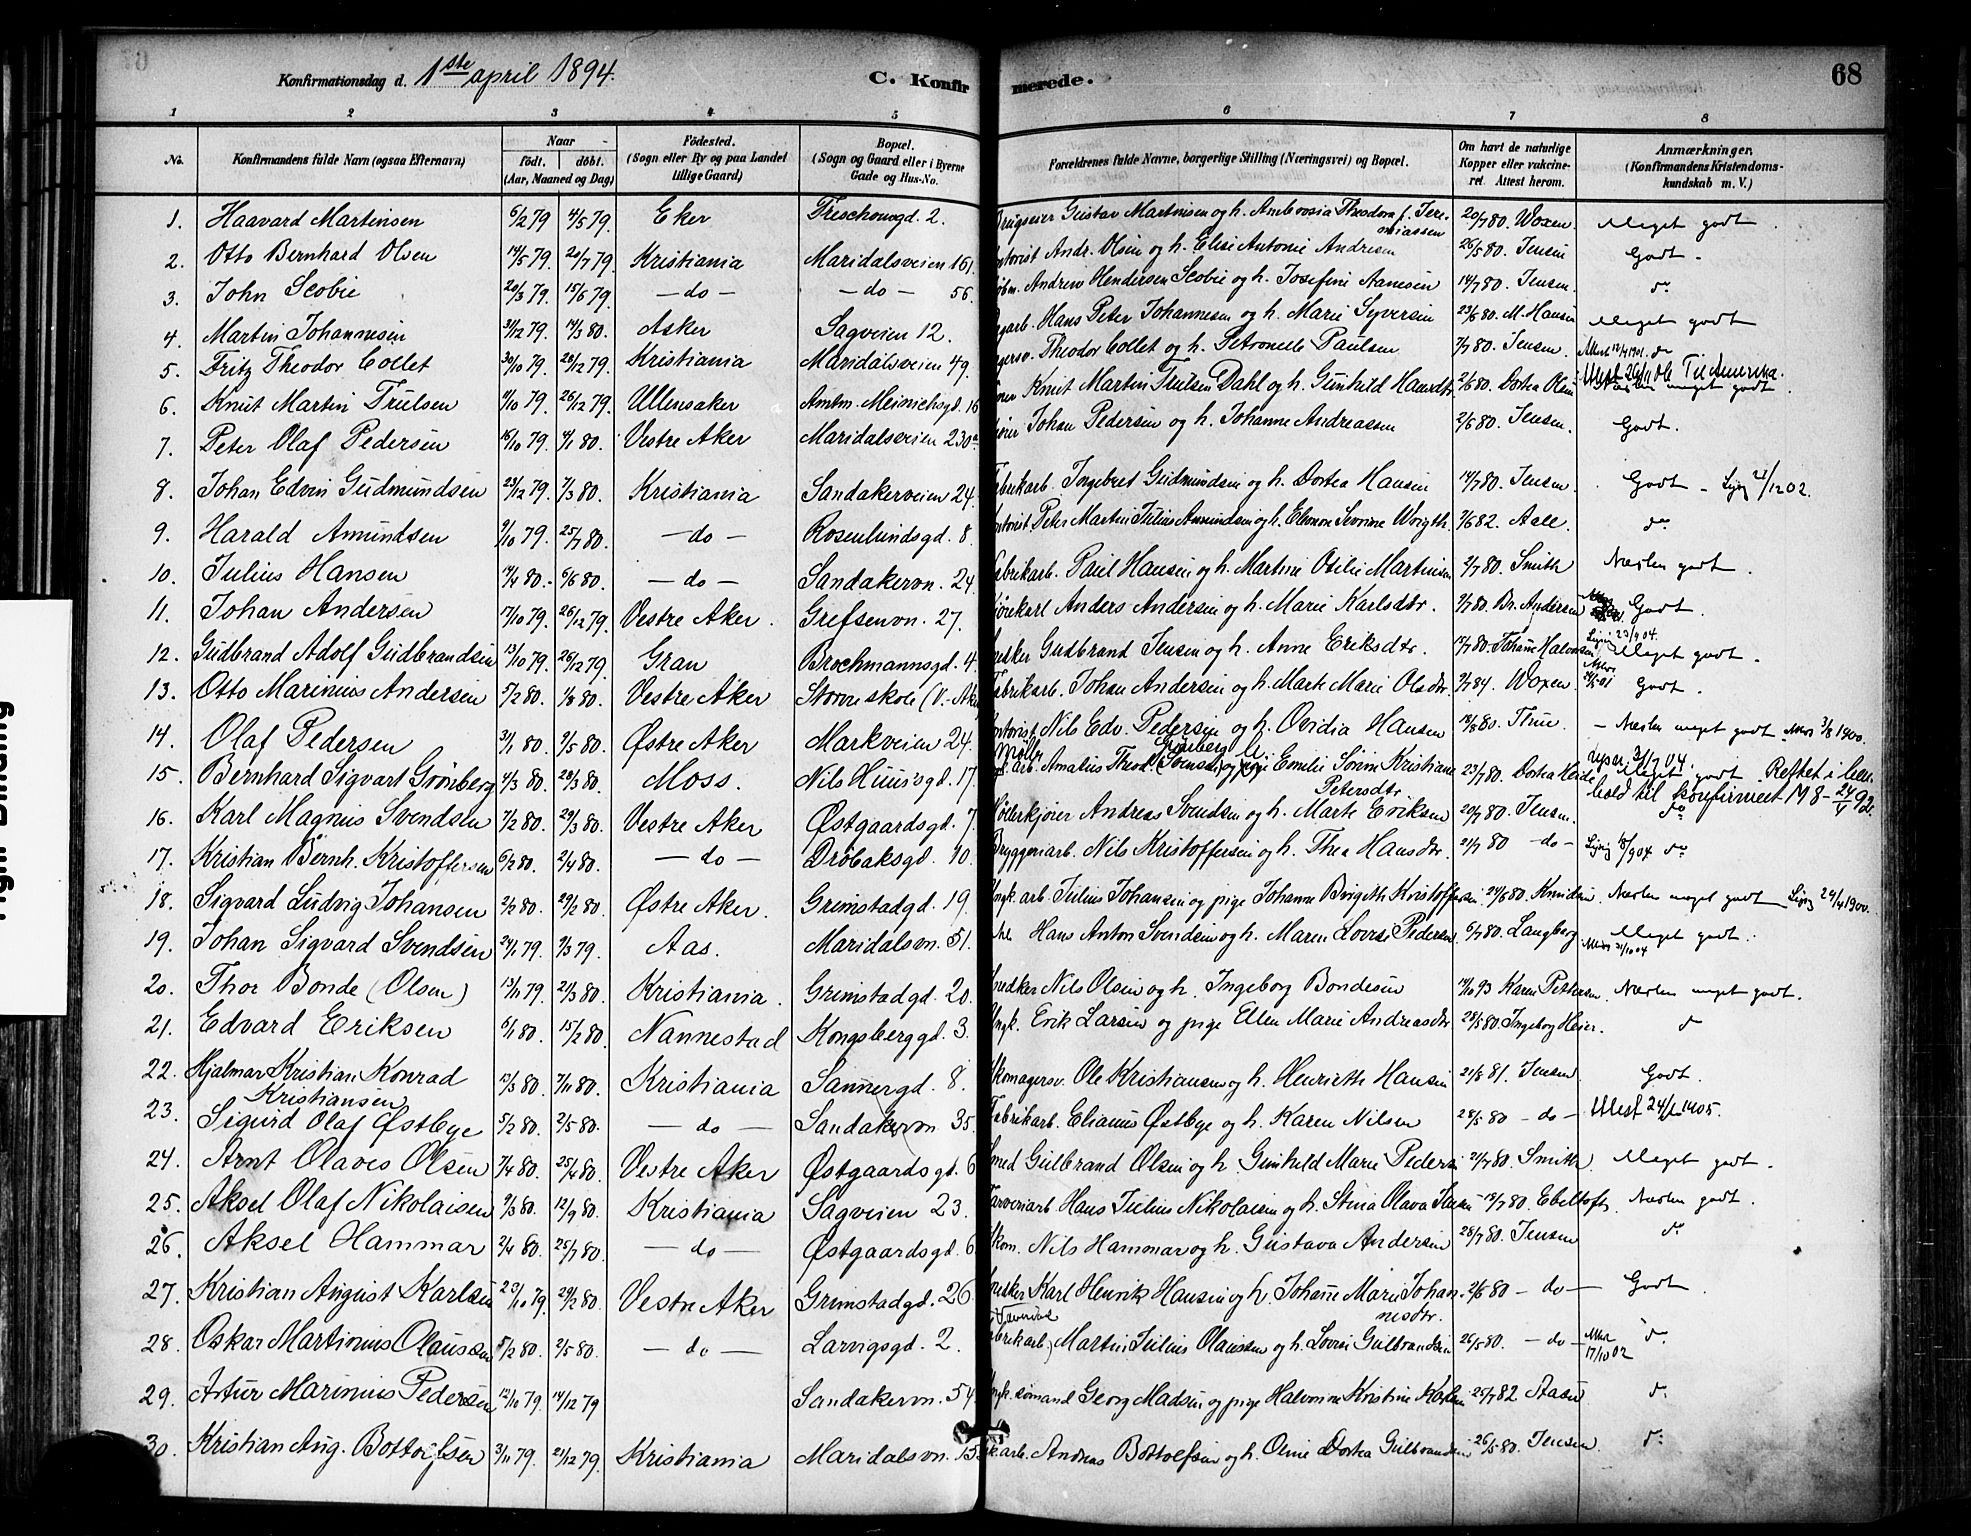 Konfirmationsdag d. 1ste april 1894.
C. Konfirmerede.
68
1 2 3 4 5 6 7 8
No.
Konfirmandens fulde Navn (ogsaa Efternavn)
Naar
födt. döbt.
(Aar, Maaned og Dag)
Födested.
(Sogn eller By og paa Landet
tillige Gaard)
Bopæl.
(Sogn og Gaard eller i Byerne
Gade og Hus-No.
Forældrenes fulde Navne, borgerlige Stilling (Næringsvei) og Bopæl.
Om havt de naturlige
Kopper eller vakcine-
ret. Attest herom.
Anmærkninger.
(Konfirmandens Kristendoms-
kundskab m. V.)
1. Haavard Martinsen 6/2 79. 4/5 79. Eker Treschowsgd. 2. Gustav Martinsen og h. Ambrosia Theodora f. Jere-
miassen 20/7 80. Woxen. Meget godt.
2. Otto Bernhard Olsen 14/5 79. 20/7 79. Kristiania Maridalsveien 161. Andr. Olsen og h. Elise Antonie Andresen 26/5 80. Jensen Godt.
3. John Scobie 20/3 79. 15/6 79. - do - - do - 56. Andrew Hendersen Scobie og h. Josefine Aanesen 14/7 80. Jensen. do
4. Martin Johannesen 31/12 79. 14/3 80. Asker Sagveien 12. Hans Peter Johannesen og h. Marie Syversen 23/6 80. M. Hansen Meget godt
5. Fritz Theodor Collet 30/10 79. 28/12 79. Kristiania Maridalsveien 49. Theodor Collet og h. Petronelle Paulsen 7/7 80. Jensen. do
Til Amerika.
6. Knut Martin Trulsen 9/10 79. 26/12 79. Ullensaker Amtm. Meinichsgd. 16 Knut Martin Trulsen Dahl og h. Gunhild Hansdtr. 2/6 80. Dortea Olsen meget godt.
7. Peter Olaf Pedersen 16/10 79. 4/1 80. Vestre Aker Maridalsveien 230a Johan Pedersen og h. Johanne Andreassen 2/6 80. Jensen. Godt.
8. Johan Edvin Gudmundsen 23/12 79. 7/3 80. Kristiania Sandakerveien 24. Fabrikarb. Ingebret Gudmundsen og h. Dortea Hansen 14/7 80. Jensen. Godt
9. Harald Amundsen 9/10 79. 25/7 80. - do - Rosenlundsgd. 8. Peter Martin Julius Amundsen og h. Elenore Severine Woigth. 7/6 82. Aall. do
10. Julius Hansen 14/4 80. 6/6 80. - do - Sandakervn. 24. Fabrikarb. Paul Hansen og h. Martine Otilie Martinsen 2/7 80. Smith Næsten godt.
11. Johan Andersen 17/10 79. 26/12 79. Vestre Aker. Grefsenvn. 27. Kjørekarl Anders Andersen og h. Marie Karlsdtr. 7/7 80. Br. Andersen Godt.
12. Gudbrand Adolf Gudbrandsen 13/10 79. 26/12 79. Gran Brochmannsgd. 4 Gudbrand Jensen og h. Anne Eriksdtr. 17/7 80. Johanne Halvorsen Meget godt.
13. Otto Marinius Andersen 5/2 80. 1/8 80. Vestre Aker Storvo skole (V. Aker Fabrikarb. Johan Andersen og h. Marte Marie Olsdtr 7/7 84. Woxen. Godt.
14. Olaf Pedersen 31/1 80. 9/5 80. Østre Aker Markveien 24. Nils Edv. Pedersen og h. Ovidia Hansen 18/8 80. Thue. - Næsten meget godt.
15. Bernhard Sigvart Grönberg 4/3 80. 28/3 80. Moss. Nils Huusgd. 17. Amalius Theod. Grönberg (Svensen) Emilie Sørine Kristiane
Petersdtr 23/7 80. Dortea Meget godt. Rettet i hen-
hold til konfirmeret No 8 - 24/4 92.
16. Karl Magnus Svendsen 7/2 80. 29/3 80. Vestre Aker Østgaardsgd. 7. Andreas Svendsen og h. Marte Eriksen 20/7 80. Jensen. do
17. Kristian Bernh. Kristoffersen 6/2 80. 2/4 80. - do - Drøbaksgd. 10. Bryggeriarb. Nils Kristoffersen og h. Thea Hansdtr. 21/7 80 - do - do
18. Sigvard Ludvig Johansen 2/2 80. 29/2 80. Østre Aker. Grimstadgd. 19. Ungk. arb. Julius Johansen og pige Johanne Birgith Kristoffersen 24/6 80. Knudsen. Næsten meget godt 24/4 1900.
19. Johan Sigvard Svendsen 24/1 79. 9/3 79. Aas. Maridalsvn. 51. Hans Anton Svendsen og h. Maren Lovise Pedersen 6/7 80. Langberg Meget godt.
20. Thor Bonde (Olsen) 13/11 79. 21/3 80. Kristiania. Grimstadgd. 20. Nils Olsen og h. Ingeborg Bondesen 14/10 93 Karen Pettersen. Næsten meget godt.
21. Edvard Eriksen 6/1 80. 15/2 80. Nannestad Kongsberggd. 3. Ungk. Erik Larsen og pige Ellen Marie Andreasdtr. 28/5 80. Ingeborg Heier. do
22. Hjalmar Kristian Konrad
Kristiansen 13/3 80. 7/11 80. Kristiania Sannergd. 8. Skomagersv. Ole Kristiansen og h. Henriette Hansen 21/8 81. Jensen. Godt.
23. Sigurd Olaf Østbye 5/2 80. 2/5 80. - do - Sandakervn. 35. Fabrikarb. Elianus Østbye og h. Karen Nilsen 28/5 80 - do -
24. Arnt Olaves Olsen 7/4 80. 25/4 80. Vestre Aker Østgaardsgd. 6 Smed Gulbrand Olsen og h. Gunhild Marie Pedersen 21/7 80. Smith. Meget godt.
25. Aksel Olaf Nikolaisen 9/3 80. 12/9 80. Kristiania Sagveien 23. Farveriarb. Hans Julius Nikolaisen og h. Stina Olava Jensen 13/7 80. Ebeltoft. Næsten godt.
26. Aksel Hammar 2/4 80. 25/7 80. - do - Østgaardsgd. 6 Skom. Nils Hammar og h. Gustava Andersen 28/7 80. Jensen do
27. Kristian August Karlsen 23/10 79. 29/2 80. Vestre Aker Grimstadgd. 26 Karl Henrik Hansen og h. Johanne Marie Johan-
nesdtr. 2/6 80 - do - Godt.
28. Oskar Martinius Olaussen 5/2 80. 2/5 80. - do - Larvigsgd. 2. Fabrikarb. Martin Julius Olaussen og h. Lovise Gulbrandsen 26/5 80. - do - 17/10 02 do
29. Artur Marinius Pedersen 12/10 79. 14/12 79 Sandakervn. 54 Ungk. sømand Georg Madsen og pige Halvorine Kristine Karlsen 25/7 82 Aasen do
30. Kristian Aug. Bottolfsen 3/11 79. 21/12 79. Kristiania Maridalsvn. 15 Andreas Bottolfsen og h. Oline Dortea Gulbrandsen 26/5 80. Jensen. do